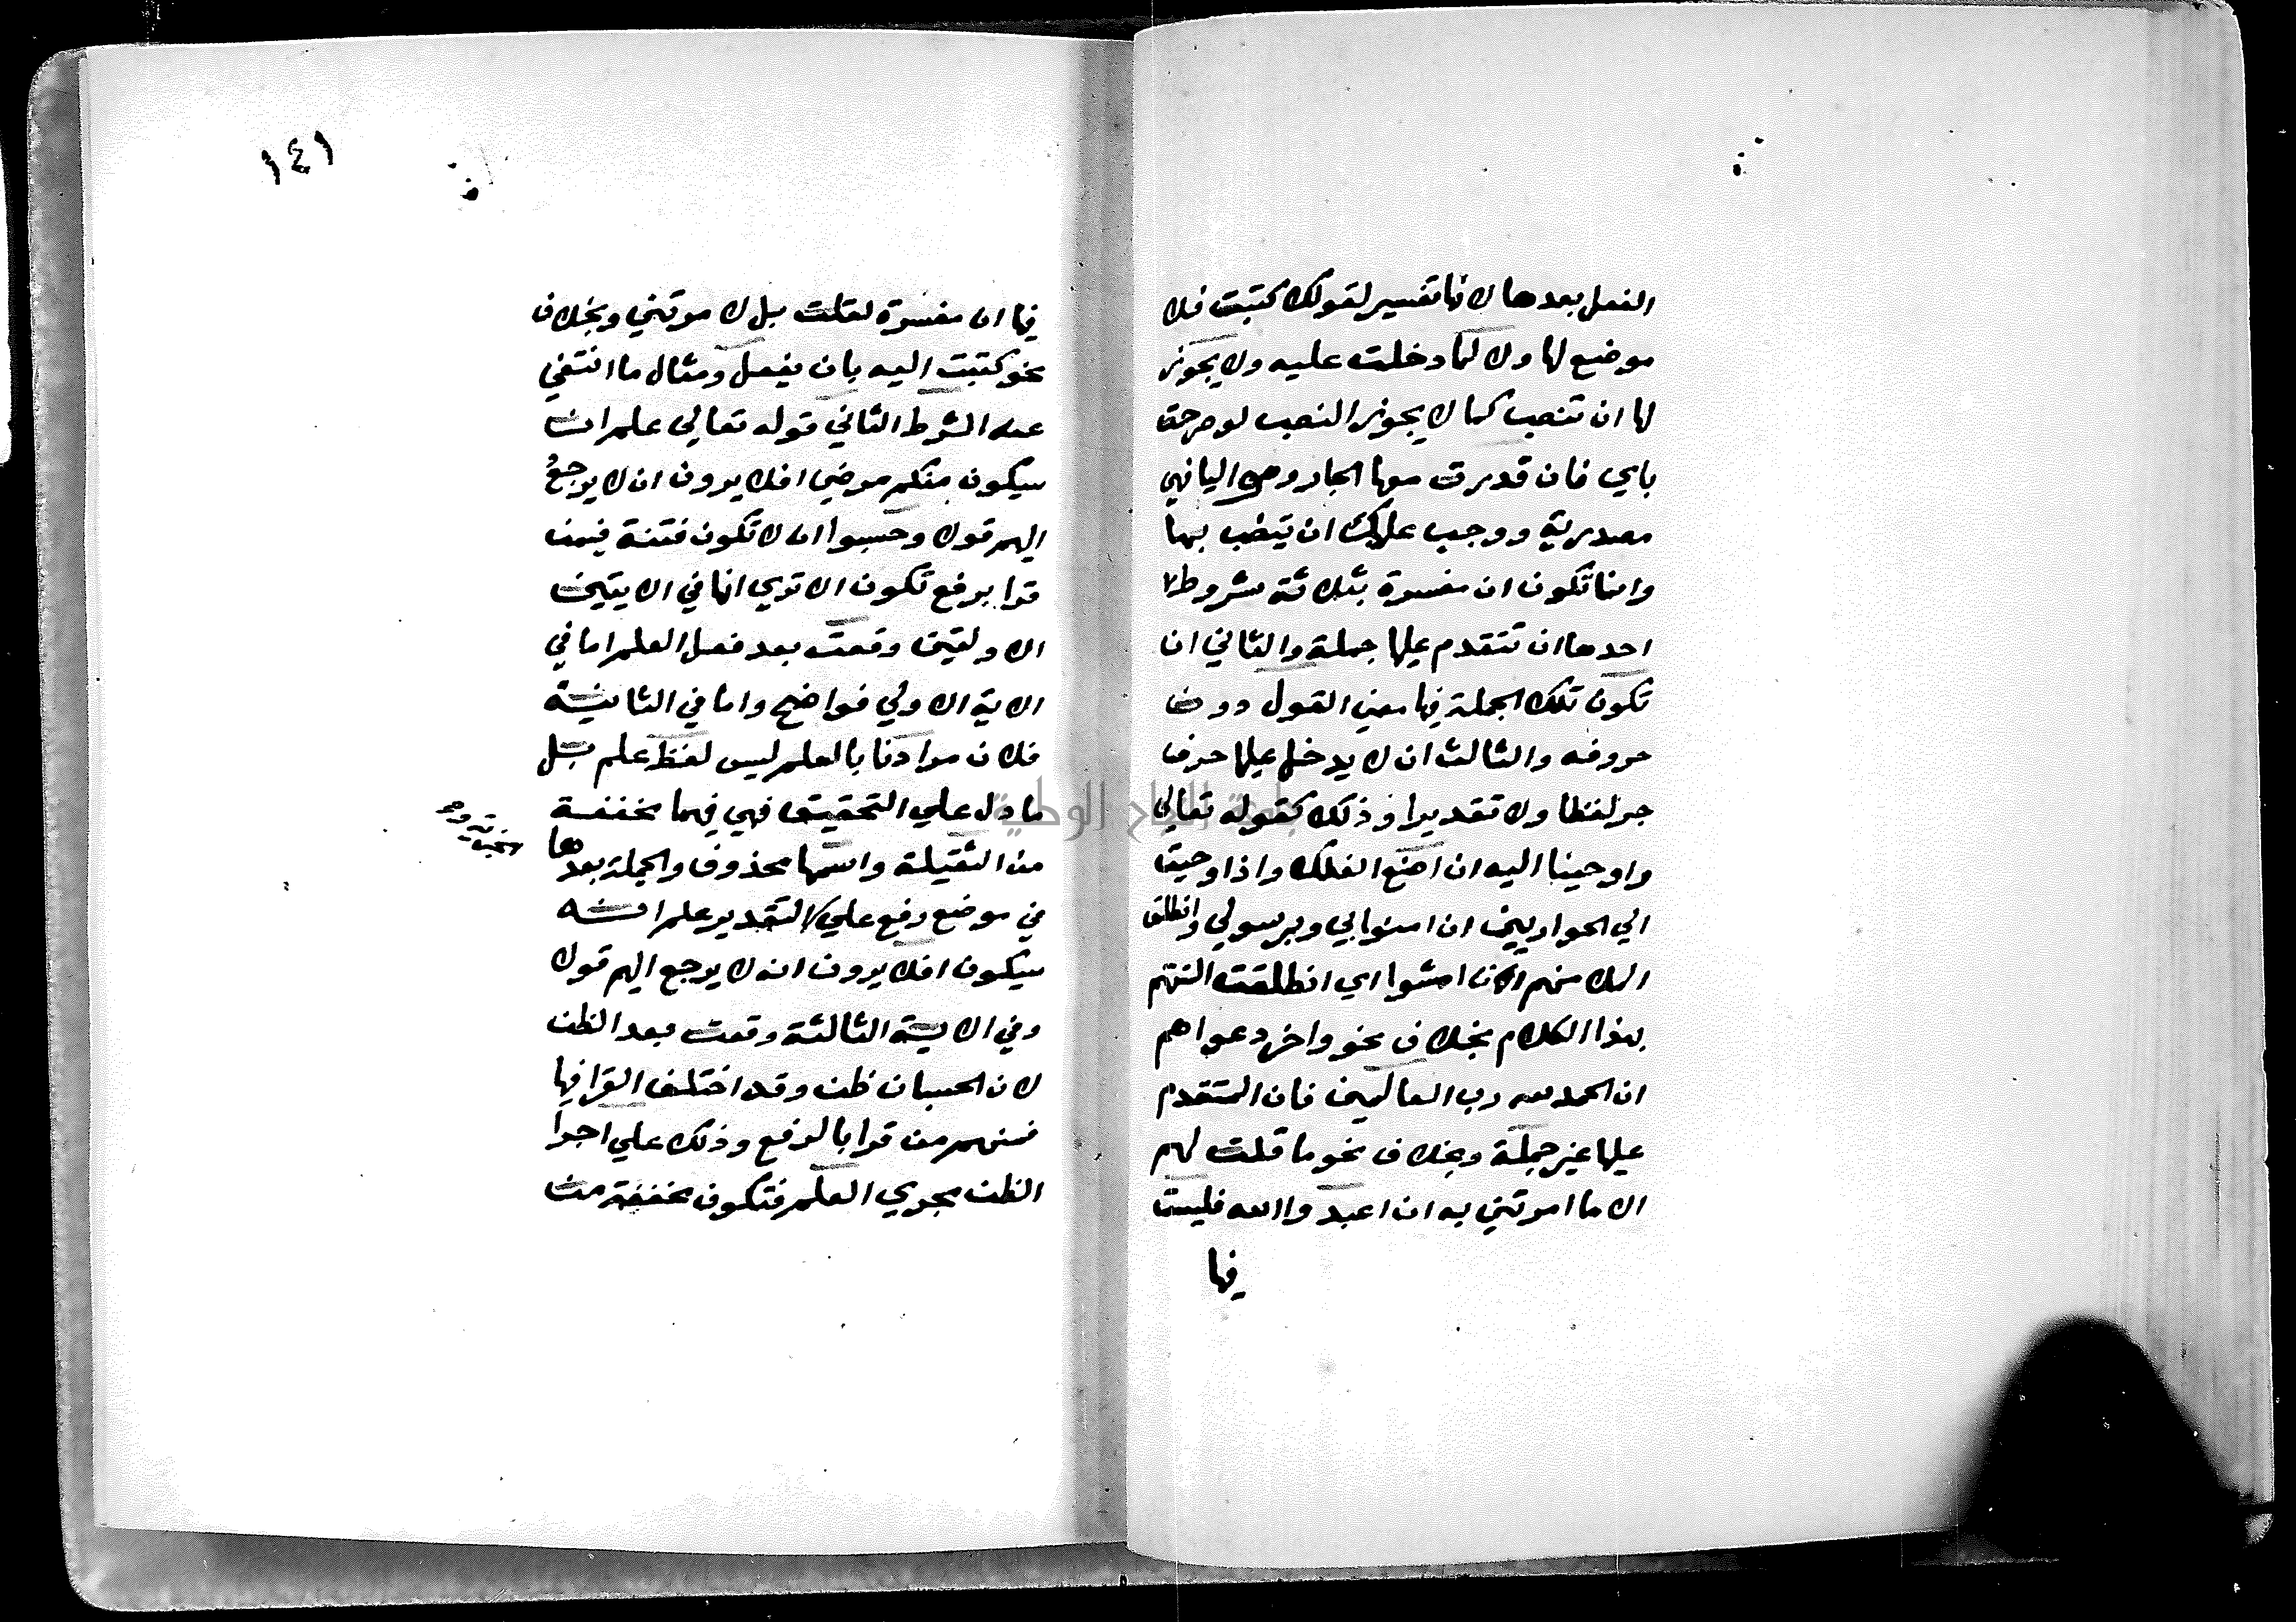 الفعل بعدها لانها تفسير لقولك كتبت فلا
موضع لها ولا لما دخلت عليه ولا يجوز
لها ان تنصب كما لا يجوز النصب لو صرحت
باي فان قدرت معها الجار وهو اليا فهي
مصدرية ووجب عليك ان تنصب بها
وانما تكون ان مفسرة بثلاثة شروط
احدها ان تتقدم عليها جملة والثاني ان
تكون تلك الجملة فيها معني القول دون
حروفه والثالث ان لا يدخل عليها حرف
جر لفظا ولا تقديرا وذلك كقوله تعالي
واوحينا اليه ان اصنع الفلك واذ اوحيت
الي الحواريين ان امنوا بي وبرسولي وانطلق
الملا منهم ان امشوا اي انطلقت السنتهم
بهذا الكلام بخلاف نحو واخر دعواهم
ان الحمد لله رب العالمين فان المتقدم
عليها غير جملة وبخلاف نحو ما قلت لهم
الا ما امرتني به ان اعبدوا الله فليست
فيها
١٤١
فيها ان مفسرة لقلت بل لامرتني وبخلاف
نحو كتبت اليه بان يفعل ومثال ما انتفي
عنه الشرط الثاني قوله تعالي علم ان
سيكون منكم مرضي افلا يرون ان لا يرجع
اليهم قولا وحسبوا ان لا تكون فتنة فيمن
قرا برفع تكون الا تري انها في الايتين
الاولتين وقعت بعد فعل العلم اما في
الاية الاولي فواضح واما في الثانية
فلان مرادنا بالعلم ليس لفظ علم بل
ما دل علي التحقيق فهي فيهما مخففة
من الثقيلة واسمها محذوف والجملة بعدها
في موضع رفع علي التقدير علم انه
سيكون افلا يرون انه لا يرجع اليهم قولا
وفي الاية الثالثة وقعت بعد الظن
لان الحسبان ظن وقد اختلف القرا فيها
فمنهم من قرا بالرفع وذلك علي اجرا
الظن مجري العلم فتكون مخففة من
جامعة النجاح الوطنية